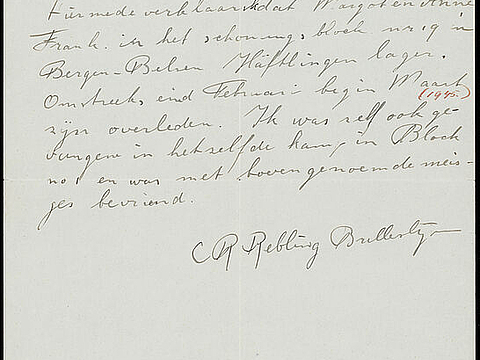 Hiermede verklaar ik dat Margot en Anne
Frank in het schonungsblock no 19 in
Bergen-Belsen Häftlingen lager.
Omstreeks eind Februari begin Maart
(1945.)
zijn overleden. Ik was self ook ge-
vangen in hetselfde kamp in Block
no 1 en was met bovengenoemde meis-
jes bevriend.
C R Rebling Brilleslijper